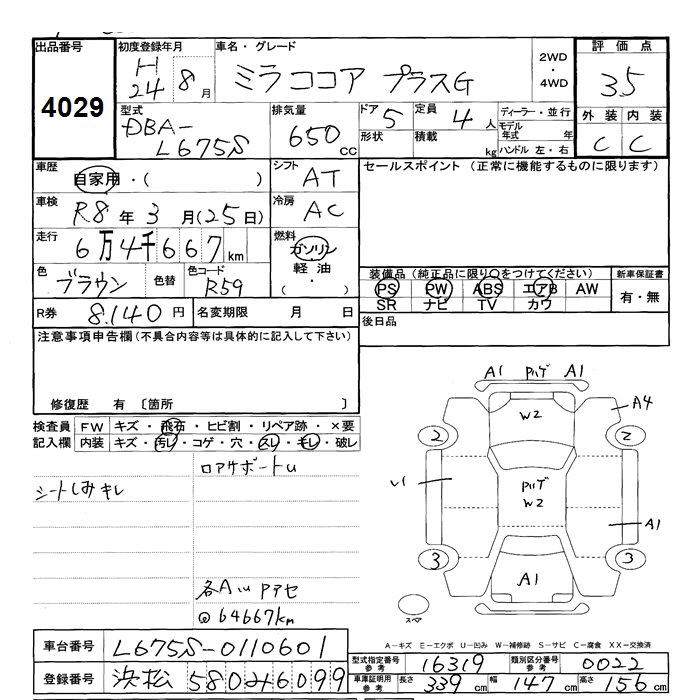 出品番号
4029
初度登録年月
H24 8月
車名・グレード
ミラココア プラスG
2WD
・
4WD
評価点
3.5
外装 内装
C C
型式
DBA-
L675S
排気量
650cc
ドア
5
形状
定員
4人
積載
kg
ディーラー・並行
モデル年式 年
ハンドル 左・右
車歴
自家用・( )
シフト
AT
車検
R8年3月(25日)
冷房
AC
走行
6万4千667km
燃料
ガソリン
軽油
( ・ )
色
ブラウン
色替
色コード
R59
R券
8,140円
名変期限 月 日
セールスポイント (正常に機能するものに限ります)
装備品 (純正品に限り○をつけてください)
PS PW ABS エアB AW
SR ナビ TV カワ
新車保証書
有・無
後日品
注意事項申告欄(不具合内容等は具体的に記入して下さい)
修復歴 有 〔箇所 〕
検査員 FW キズ・飛石・ヒビ割・リペア跡・×要
記入欄 内装 キズ・汚レ・コゲ・穴・スレ・キレ・破レ
シートしみキレ
各AUPアセ
@64667km
A1 ハゲ A1
W2
A4
2
2
ハゲ
W2
A1
3
3
A1
スペア
A-キズ E-エクボ U-凹み W-補修跡 S-サビ C-腐食 XX-交換済
車台番号 L675S-0110601
登録番号 浜松 580 み 6099
型式指定番号 参考 16319
類別区分番号 参考 0022
車庫証明用 参考 長さ 339cm 幅 147cm 高さ 156cm